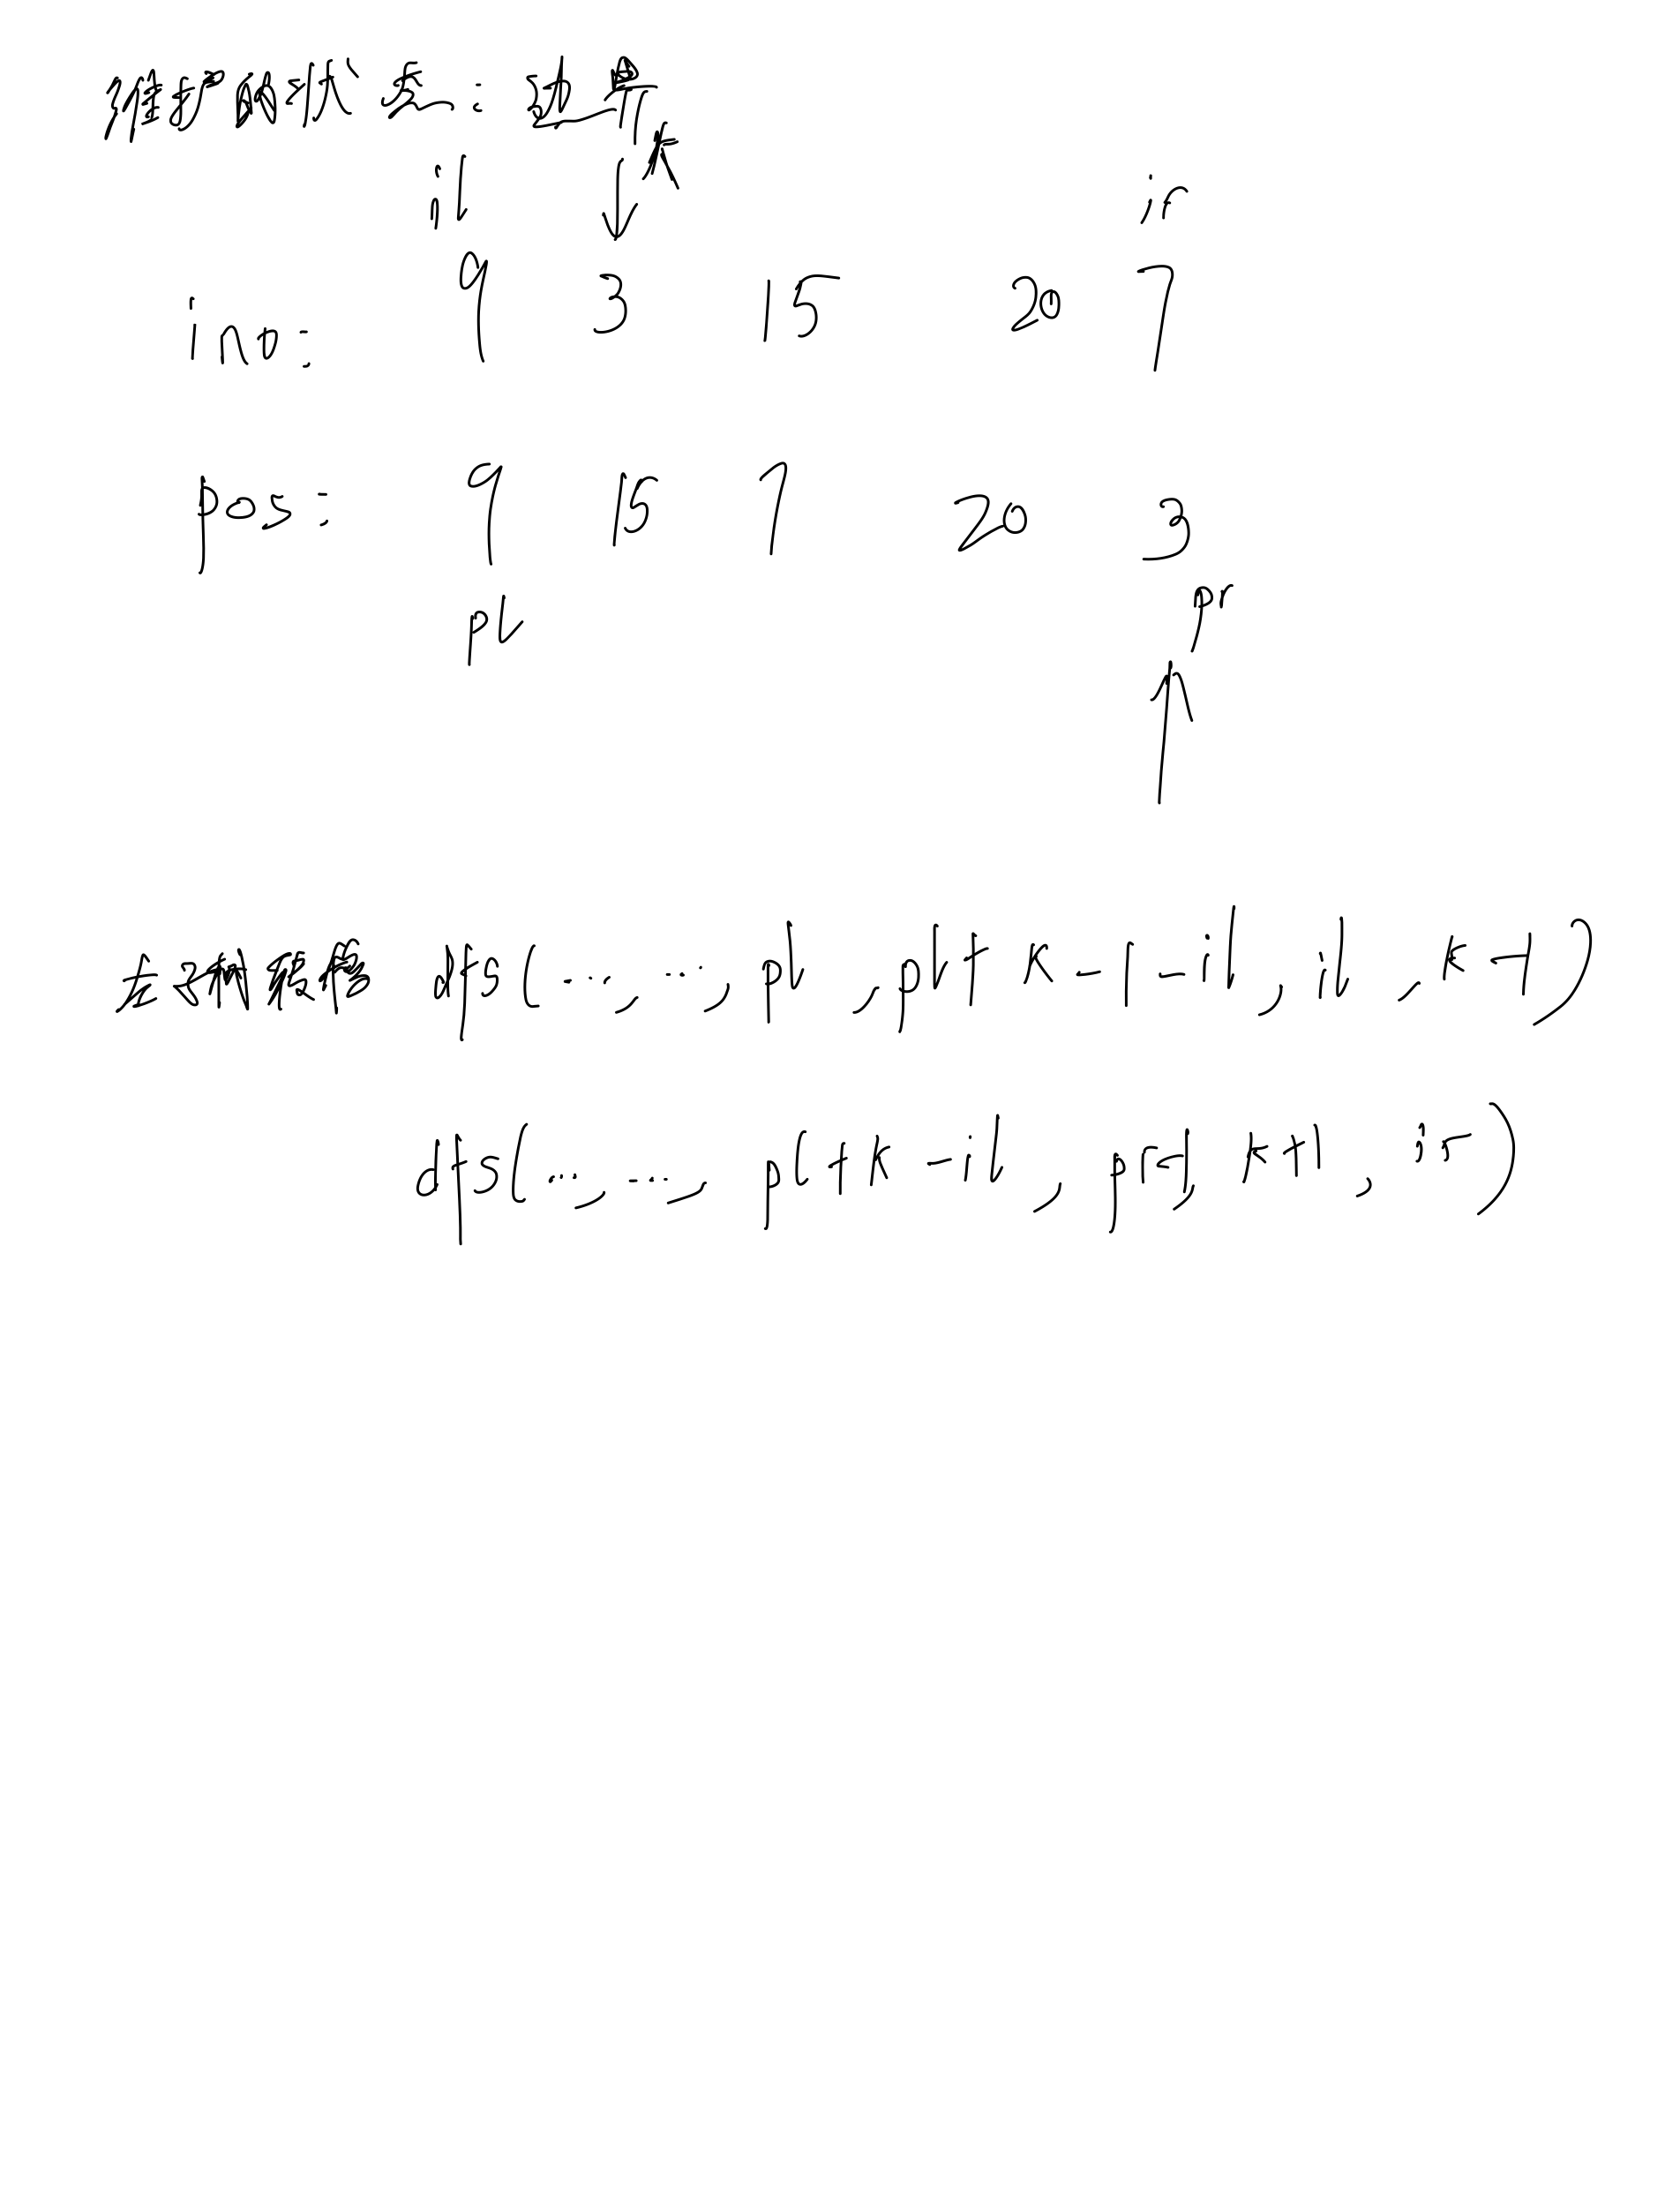 维护的状态:边界
il k ir
ino: 9 3 15 20 7
pos: 9 15 7 20 3
pl pr
dfs(..., ..., pl, pl+k-1-il, il, k-1)
dfs(..., ..., pl+k-il, pr-1, k+1, ir)